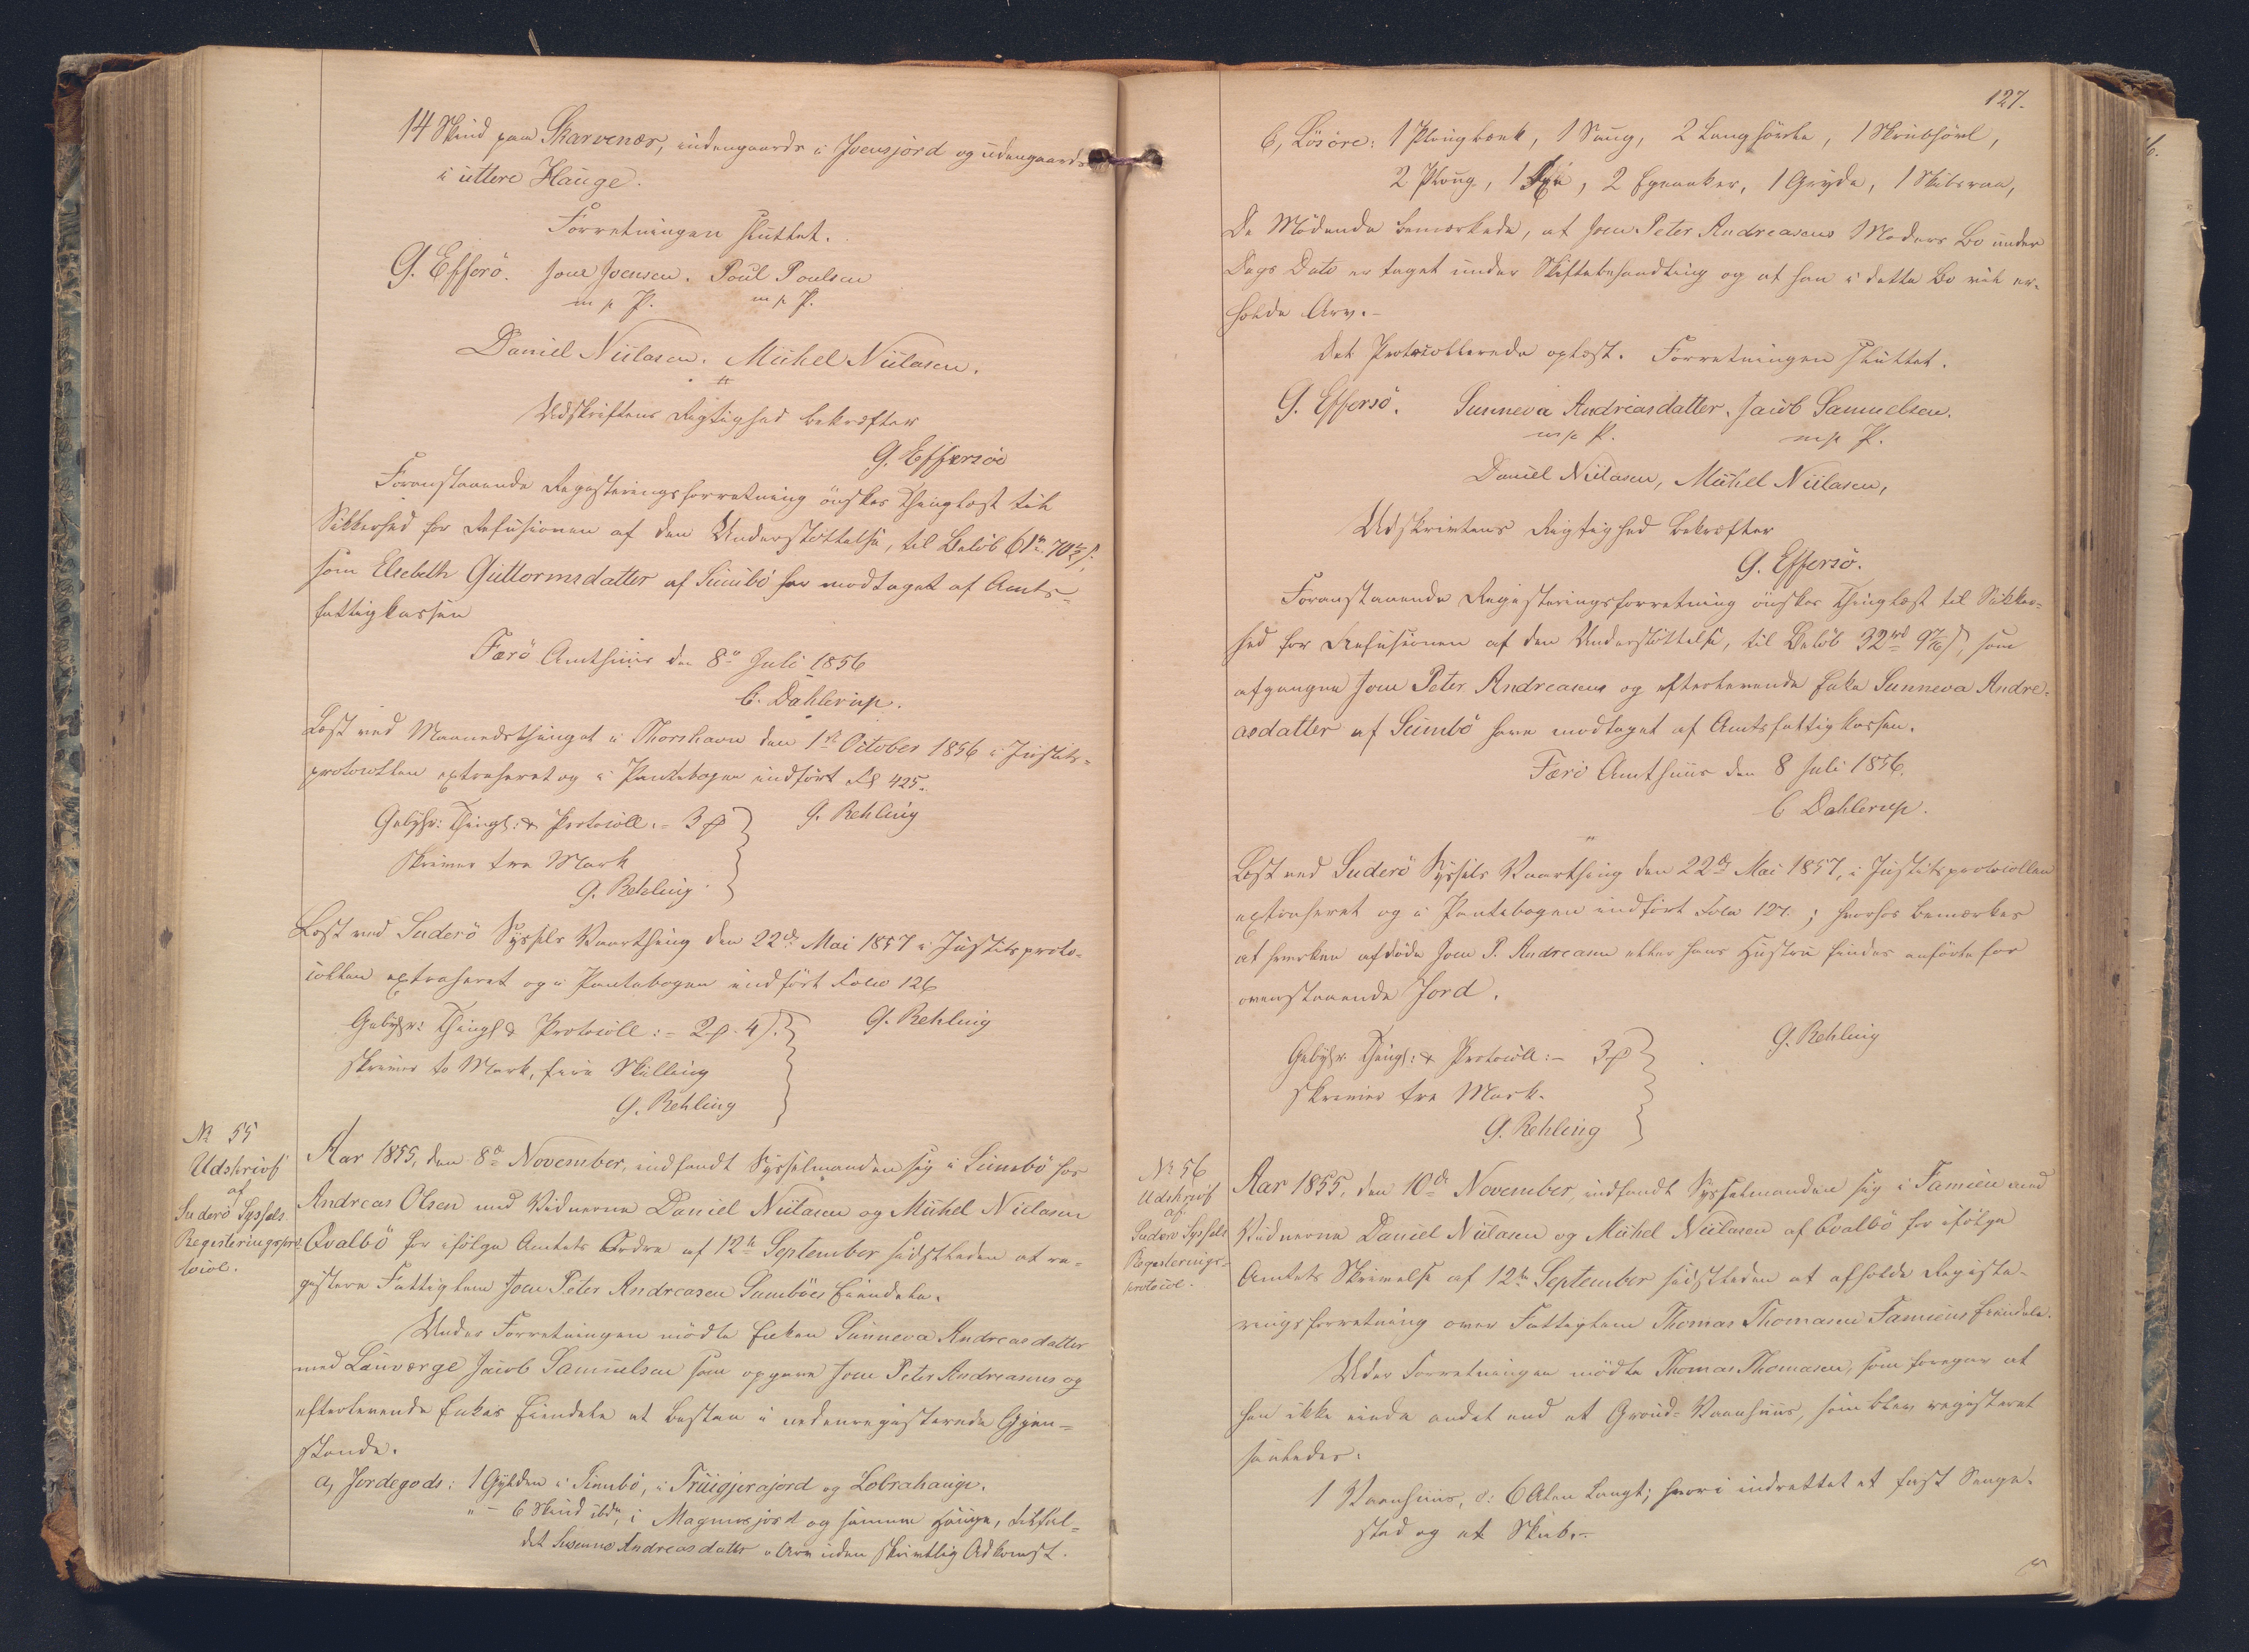 14 Skind paa Skarvenæs, indengaards i Joensjord og udengaards
i uttere Hauge.
Forretningen sluttet.
G. Effersö. Jone Joensen. Poul Poulsen
m p P. m p P.
Daniel Niclasen. Michel Niclasen.
Udskriftens Rigtighed bekræfter
G. Effersöe
Foranstaaende Registeringsforretning önskes Thinglæst til
Sikkerhed for Refusionen af den Understöttelse, til Belöb
som Elsebeth Guttormsdatter af Sumbö har modtaget af Amts-
fattigkassen
Færö Amthuus den 8de Juli 1856
C. Dahlerup.
Læst ved Maanedsthinget i Thorshavn den 1ste October 1856 i Justits-
protocollen extraheret og i Pantebogen indfört Fol 425.
Gebyhr: Thingl: & Protocoll. - 3 ℔ G. Rehling
skriver tre Mark
G. Rehling
Læst ved Suderö Syssels Vaarthing den 22de Mai 1857 i Justitsproto-
collen extraheret og i Pantebogen indfört Folio 126
Gebyhr: Thingl & Protocoll: - 2 ℔ - 4 ß. G. Rehling
skriver to Mark, fire Skilling
G. Rehling
No 55
Udskrivt
af
Suderö Syssels
Registeringspro-
tocol.
Aar 1855, den 8de November, indfandt Sysselmanden sig i Sumbö hos
Andreas Olsen med Vidnerne Daniel Niclasen og Michel Niclasen
Qvalbö for ifölge Amtets Ordre af 12te September sidstleden at re-
gistere Fattiglem Joen Peter Andreasen Sumböes Eiendele.
Under Forretningen mödte Enken Sunneva Andreasdatter
med Laugværge Jacob Samuelsen som opgave Joen Peter Andreasens og
efterlevende Enkes Eiendele at bestaa i nedenregisterede Gjen-
stande.
a, Jordegods: 1 Gylden i Sumbö, i Truigjerajord og Lobrahauge.
" - 6 Skind ibdm, i Magnusjord og samme Hauge, tilfal-
det Sunneva Andreasdatter i Arv uden skrivtlig Adkomst.
127.
b, Lösöre: 1 Plougbænk, 1 Saug, 2 Langhövle, 1 Skrubhövl,
2 Ploug, 1 Öxe, 2 Egeanker, 1 Gryde, 1 Skibsraa,
De Mödende bemærkede, at Joen Peter Andreasens Moders Bo under
Dags Dato er taget under Skiftebehandling og at han i dette Bo vil er-
holde Arv. -
Det Protocollerede oplæst. Forretningen sluttet.
G. Effersö. Sunneva Andreasdatter. Jacob Samuelsen.
m p P. m p P.
Daniel Niclasen, Michel Niclasen,
Udskrivtens Rigtighed bekræfter
G. Effersö.
Foranstaaende Registeringsforretning önskes Thinglæst til Sikker-
hed for Refusionen af den Understöttelse, til Belöb 32 rd 9 ß, som
afgangne Joen Peter Andreasens og efterlevende Enke Sunneva Andre-
asdatter af Sumbö have modtaget af Amtsfattigkassen.
Færö Amthuus den 8 Juli 1856.
C Dahlerup.
Læst ved Suderö Syssels Vaarthing den 22de Mai 1857, i Justitsprotocollen
extraheret og i Pantebogen indfört Folio 127; hvorhos bemærkes
at hverken afdöde Joen P. Andreasen eller hans Hustru findes anförte for
ovenstaaende Jord.
G. Rehling
Gebyhr Thingl: & Protocoll: - 3 ℔
skriver tre Mark.
G. Rehling
No 56
Udskrivt
af
Suderö Syssels
Registerings-
protocol.
Aar 1855, den 10de November indfandt Sysselmanden sig i Famien med
Vidnerne Daniel Niclasen og Michel Niclasen af Qvalbö for ifölge
Amtets Skrivelse af 12te September sidstleden at afholde Registe-
ringsforretning over Fattiglem Thomas Thomasen Famiens Eiendele.
Under Forretningen mödte Thomas Thomasen, som foregav at
han ikke eiede andet end et Groud-Vaanhuus, som blev registeret
saaledes:
1 Vaanhuus, o: 6 Alen langt; hvori indrettet et fast Senge-
sted og et Skab. -